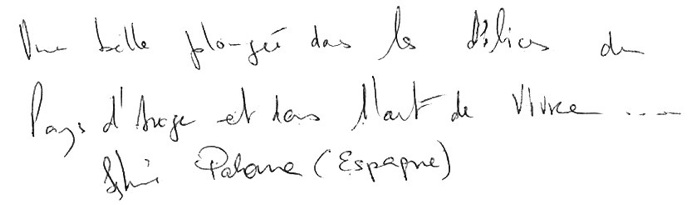 Une belle plongée dans les délices du
Pays d'Auge et dans l'art de vivre ....
Paloma (Espagne)